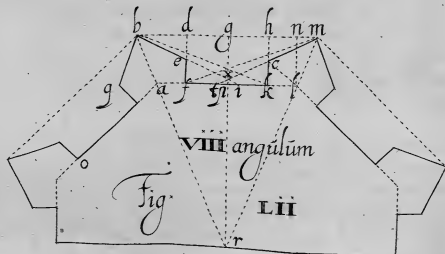 b d g h n m
e c
g a f i k l
VIII angulum
o
Fig. LII
r